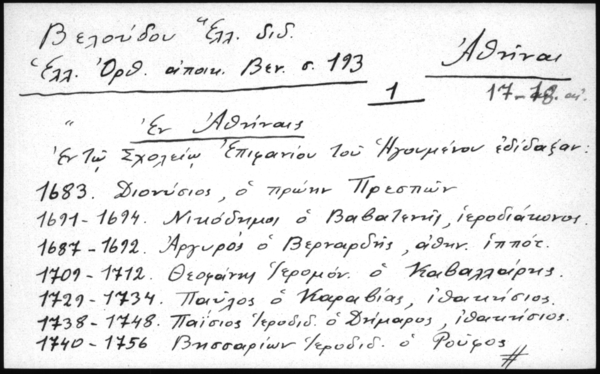 Βελούδου Ἑλλ. διδ.
Ἑλλ. Ὀρθ. ἀποικ. Βεν. σ. 193
Ἀθῆναι
1
17-18. αἰ.
" Ἐν Ἀθήναις
Ἐν τῷ Σχολείῳ Ἐπιφανίου τοῦ Ἡγουμένου ἐδίδαξαν:
1683. Διονύσιος, ὁ πρώην Πρεσπῶν
1691-1694. Νικόδημος ὁ Βαβατενῆς, ἱεροδιάκονος.
1687-1692. Ἀργυρὸς ὁ Βερναρδῆς, ἀθην. ἱππότ.
1709-1712. Θεοφάνης Ἱερομόν. ὁ Καβαλλάρης.
1729-1734. Παῦλος ὁ Καραβίας, ἰθακήσιος.
1738-1748. Παΐσιος Ἱεροδιδ. ὁ Δήμαρος, ἰθακήσιος.
1740-1756 Βησσαρίων Ἱεροδιδ. ὁ Ροῦφος
#